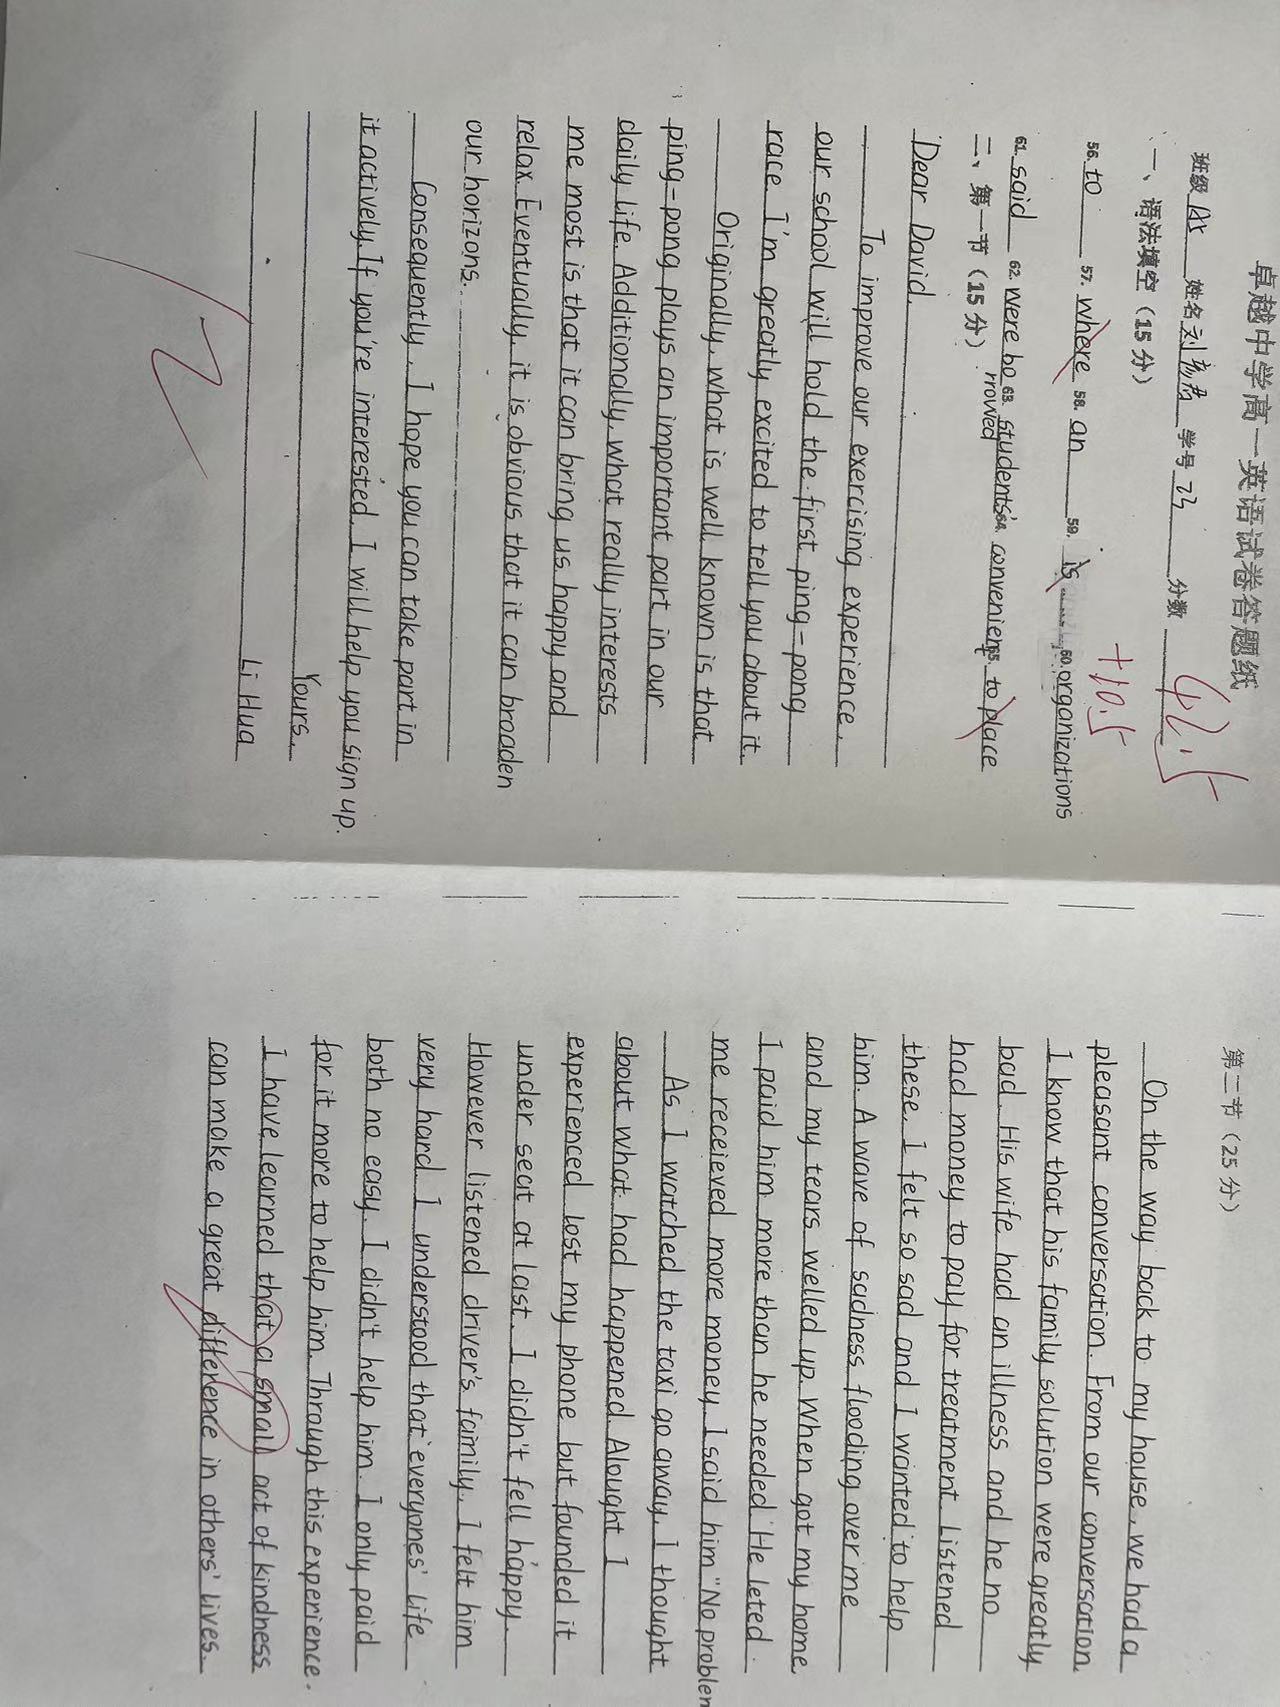 卓越中学高一英语试卷答题纸
班级 姓名 刘 学号 23 分数 42.5
一、语法填空（15 分） +10.5
56. to 57. where 58. an 59. is 60. organizations
61. said 62. were borrowed 63. students' 64. convenient 65. to place
二、第一节（15 分）
Dear David
To improve our exercising experience,
our school will hold the first ping-pong
race I'm greatly excited to tell you about it.
Originally, what is well known is that
ping-pong plays an important part in our
daily life. Additionally, what really interests
me most is that it can bring us happy and
relax. Eventually, it is obvious that it can broaden
our horizons.
Consequently, I hope you can take part in
it actively. If you're interested, I will help you sign up.
Yours,
Li Hua
12
第二节（25 分）
On the way back to my house, we had a
pleasant conversation. From our conversation
I know that his family solution were greatly
bad. His wife had an illness and he no
had money to pay for treatment. Listened
these, I felt so sad and I wanted to help
him. A wave of sadness flooding over me
and my tears welled up. When got my home
I paid him more than he needed. He leted
me receieved more money. I said him "No problem
As I watched the taxi go away, I thought
about what had happened. Alought I
experienced lost my phone but founded it
under seat at last. I didn't fell happy.
However listened driver's family, I felt him
very hard. I understood that everyones' life
both no easy. I didn't help him. I only paid
for it more to help him. Through this experience.
I have learned that a small act of kindness
can make a great difference in others' lives.